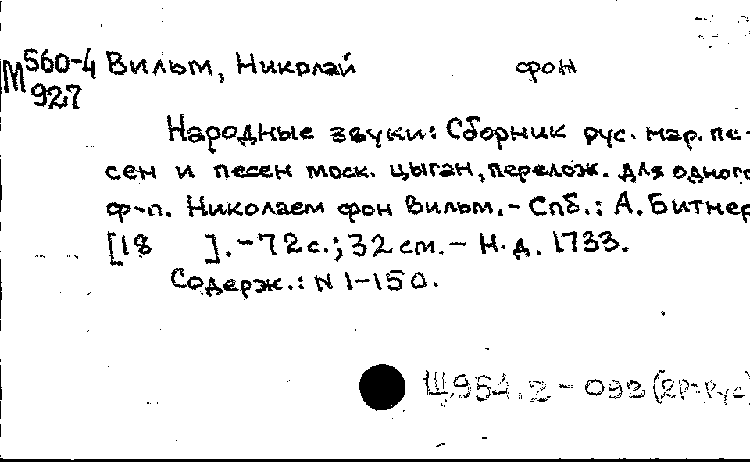 М 560-4 Вильм, Николай фон
927
Народные звуки: Сборник рус. нар. пе-
сен и песен моск. цыган, перелож. для одного
ф-п. Николаем фон Вильм. - Спб.: А. Битнер
[18 ]. - 72 с.; 32 см. - Н. д. 1733.
Содерж.: N 1-150.
Щ954.2-093(2Р=Рус)